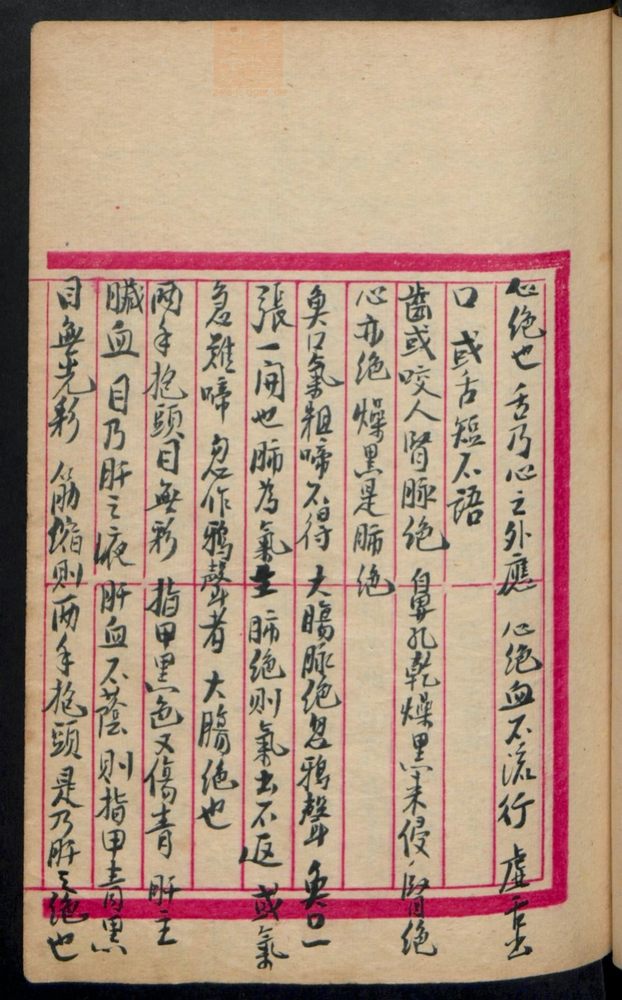 心絶也 舌乃心之外應 心絶血不流行 虚舌出
口 或舌短不語
齒或咬人腎脉絶 自鼻孔乾燥黑未侵 腎絶
心亦絶 燥黑是肺絶
魚口氣粗啼不得 大腸脉絶忽鴉聲 魚口一
張一開也 肺為氣主 肺絶則氣出不返 或氣
急難啼 忽作鴉聲者 大腸絶也
両手抱頭目無彩 指甲黑色又傷青 肝主
臓血 目乃肝之液 肝血不蔭 則指甲青黑
目無光彩 筋縮則両手抱頭 是乃肝之絶也